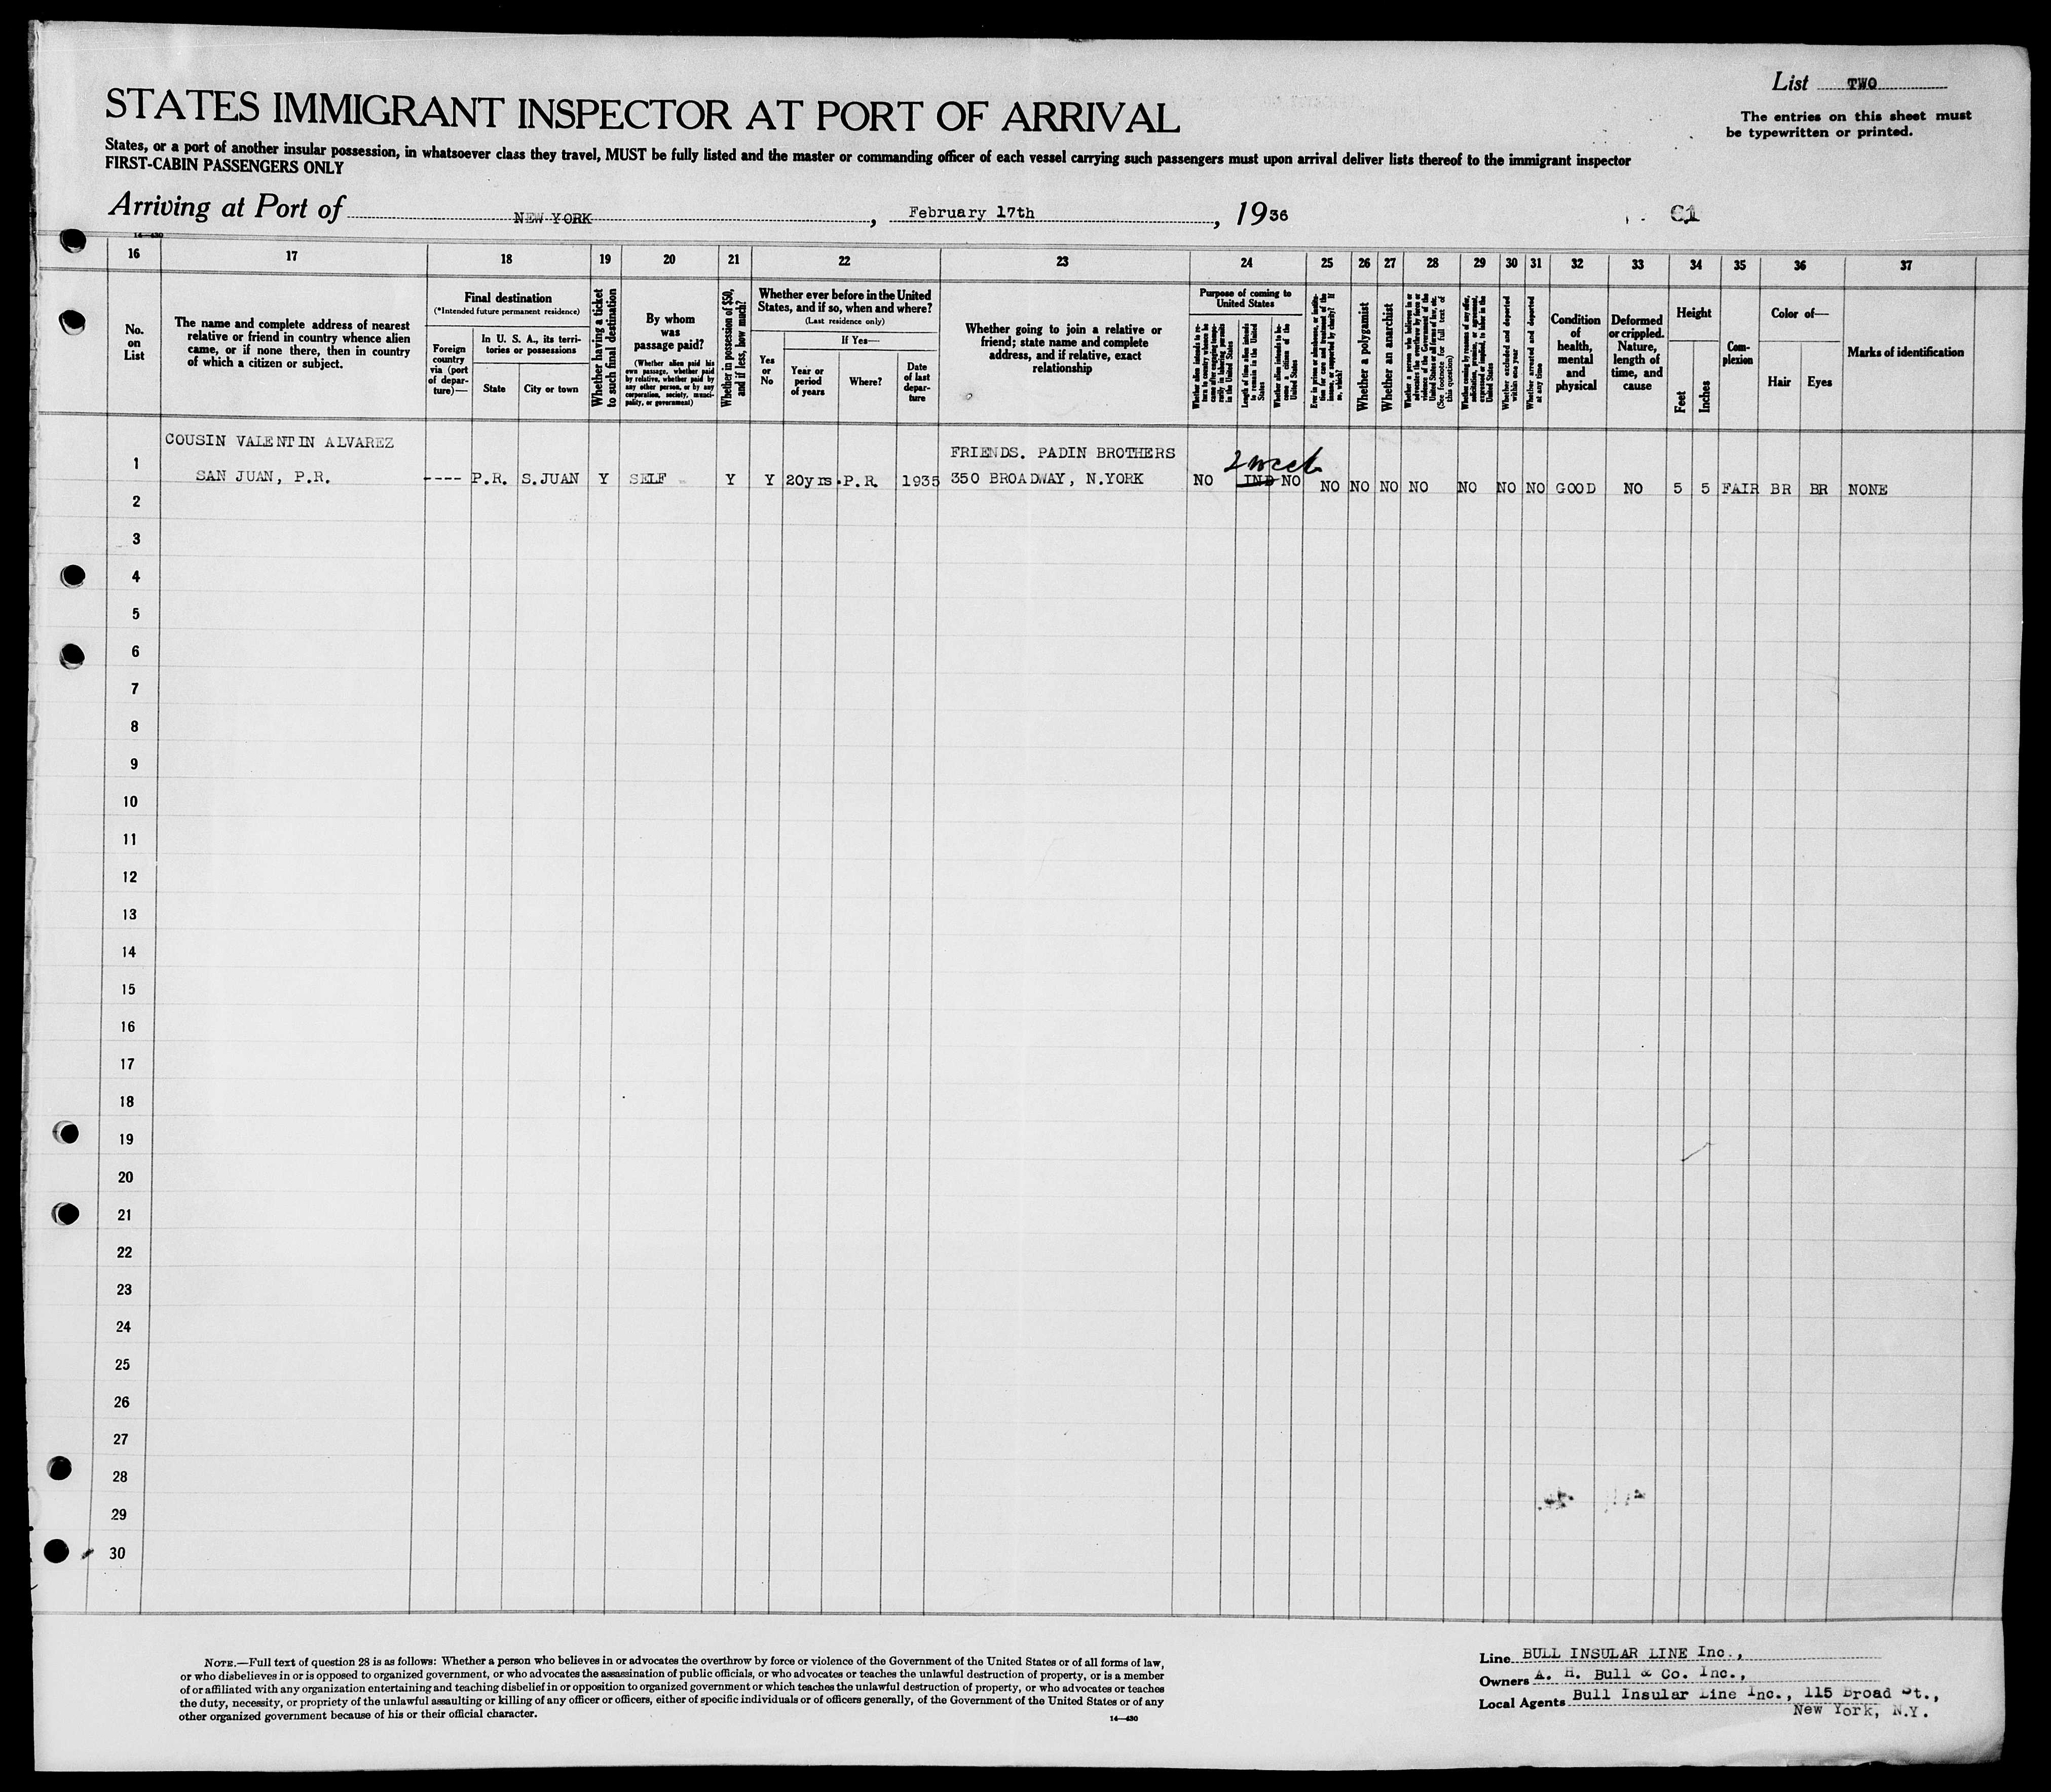 List TWO
The entries on this sheet must
be typewritten or printed.
STATES IMMIGRANT INSPECTOR AT PORT OF ARRIVAL
States, or a port of another insular possession, in whatsoever class they travel, MUST be fully listed and the master or commanding officer of each vessel carrying such passengers must upon arrival deliver lists thereof to the immigrant inspector
FIRST-CABIN PASSENGERS ONLY
Arriving at Port of NEW YORK, February 17th, 1936
C1
14—430
16 17 18 19 20 21 22 23 24 25 26 27 28 29 30 31 32 33 34 35 36 37
No.
on
List
The name and complete address of nearest
relative or friend in country whence alien
came, or if none there, then in country
of which a citizen or subject.
Final destination
(*Intended future permanent residence)
Foreign
country
via (port
of depar-
ture)—
In U. S. A., its terri-
tories or possessions
State
City or town
Whether having a ticket
to such final destination
By whom
was
passage paid?
(Whether alien paid his
own passage, whether paid
by relative, whether paid by
any other person, or by any
corporation, society, munici-
pality, or government)
Whether in possession of $50,
and if less, how much?
Whether ever before in the United
States, and if so, when and where?
(Last residence only)
Yes
or
No
If Yes—
Year or
period
of years
Where?
Date
of last
depar-
ture
Whether going to join a relative or
friend; state name and complete
address, and if relative, exact
relationship
Purpose of coming to
United States
Length of time alien intends
to remain in the United
States
Whether alien intends to be-
come a citizen of the
United States
Whether a polygamist
Whether an anarchist
(See footnote for full text of
this question)
Whether excluded and deported
within one year
Whether arrested and deported
at any time
Condition
of
health,
mental
and
physical
Deformed
or crippled.
Nature,
length of
time, and
cause
Height
Feet
Inches
Com-
plexion
Color of—
Hair
Eyes
Marks of identification
COUSIN VALENTIN ALVAREZ
FRIENDS. PADIN BROTHERS
2 week
1
SAN JUAN, P.R. ---- P.R. S.JUAN Y SELF Y Y 20yrs. P.R. 1935 350 BROADWAY, N.YORK NO IND NO NO NO NO NO NO NO NO GOOD NO 5 5 FAIR BR BR NONE
2
3
4
5
6
7
8
9
10
11
12
13
14
15
16
17
18
19
20
21
22
23
24
25
26
27
28
29
30
NOTE.—Full text of question 28 is as follows: Whether a person who believes in or advocates the overthrow by force or violence of the Government of the United States or of all forms of law,
or who disbelieves in or is opposed to organized government, or who advocates the assassination of public officials, or who advocates or teaches the unlawful destruction of property, or is a member
of or affiliated with any organization entertaining and teaching disbelief in or opposition to organized government or which teaches the unlawful destruction of property, or who advocates or teaches
the duty, necessity, or propriety of the unlawful assaulting or killing of any officer or officers, either of specific individuals or of officers generally, of the Government of the United States or of any
other organized government because of his or their official character.
14—430
Line BULL INSULAR LINE Inc.,
Owners A. H. Bull & Co. Inc.,
Local Agents Bull Insular Line Inc., 115 Broad St.,
New York, N.Y.